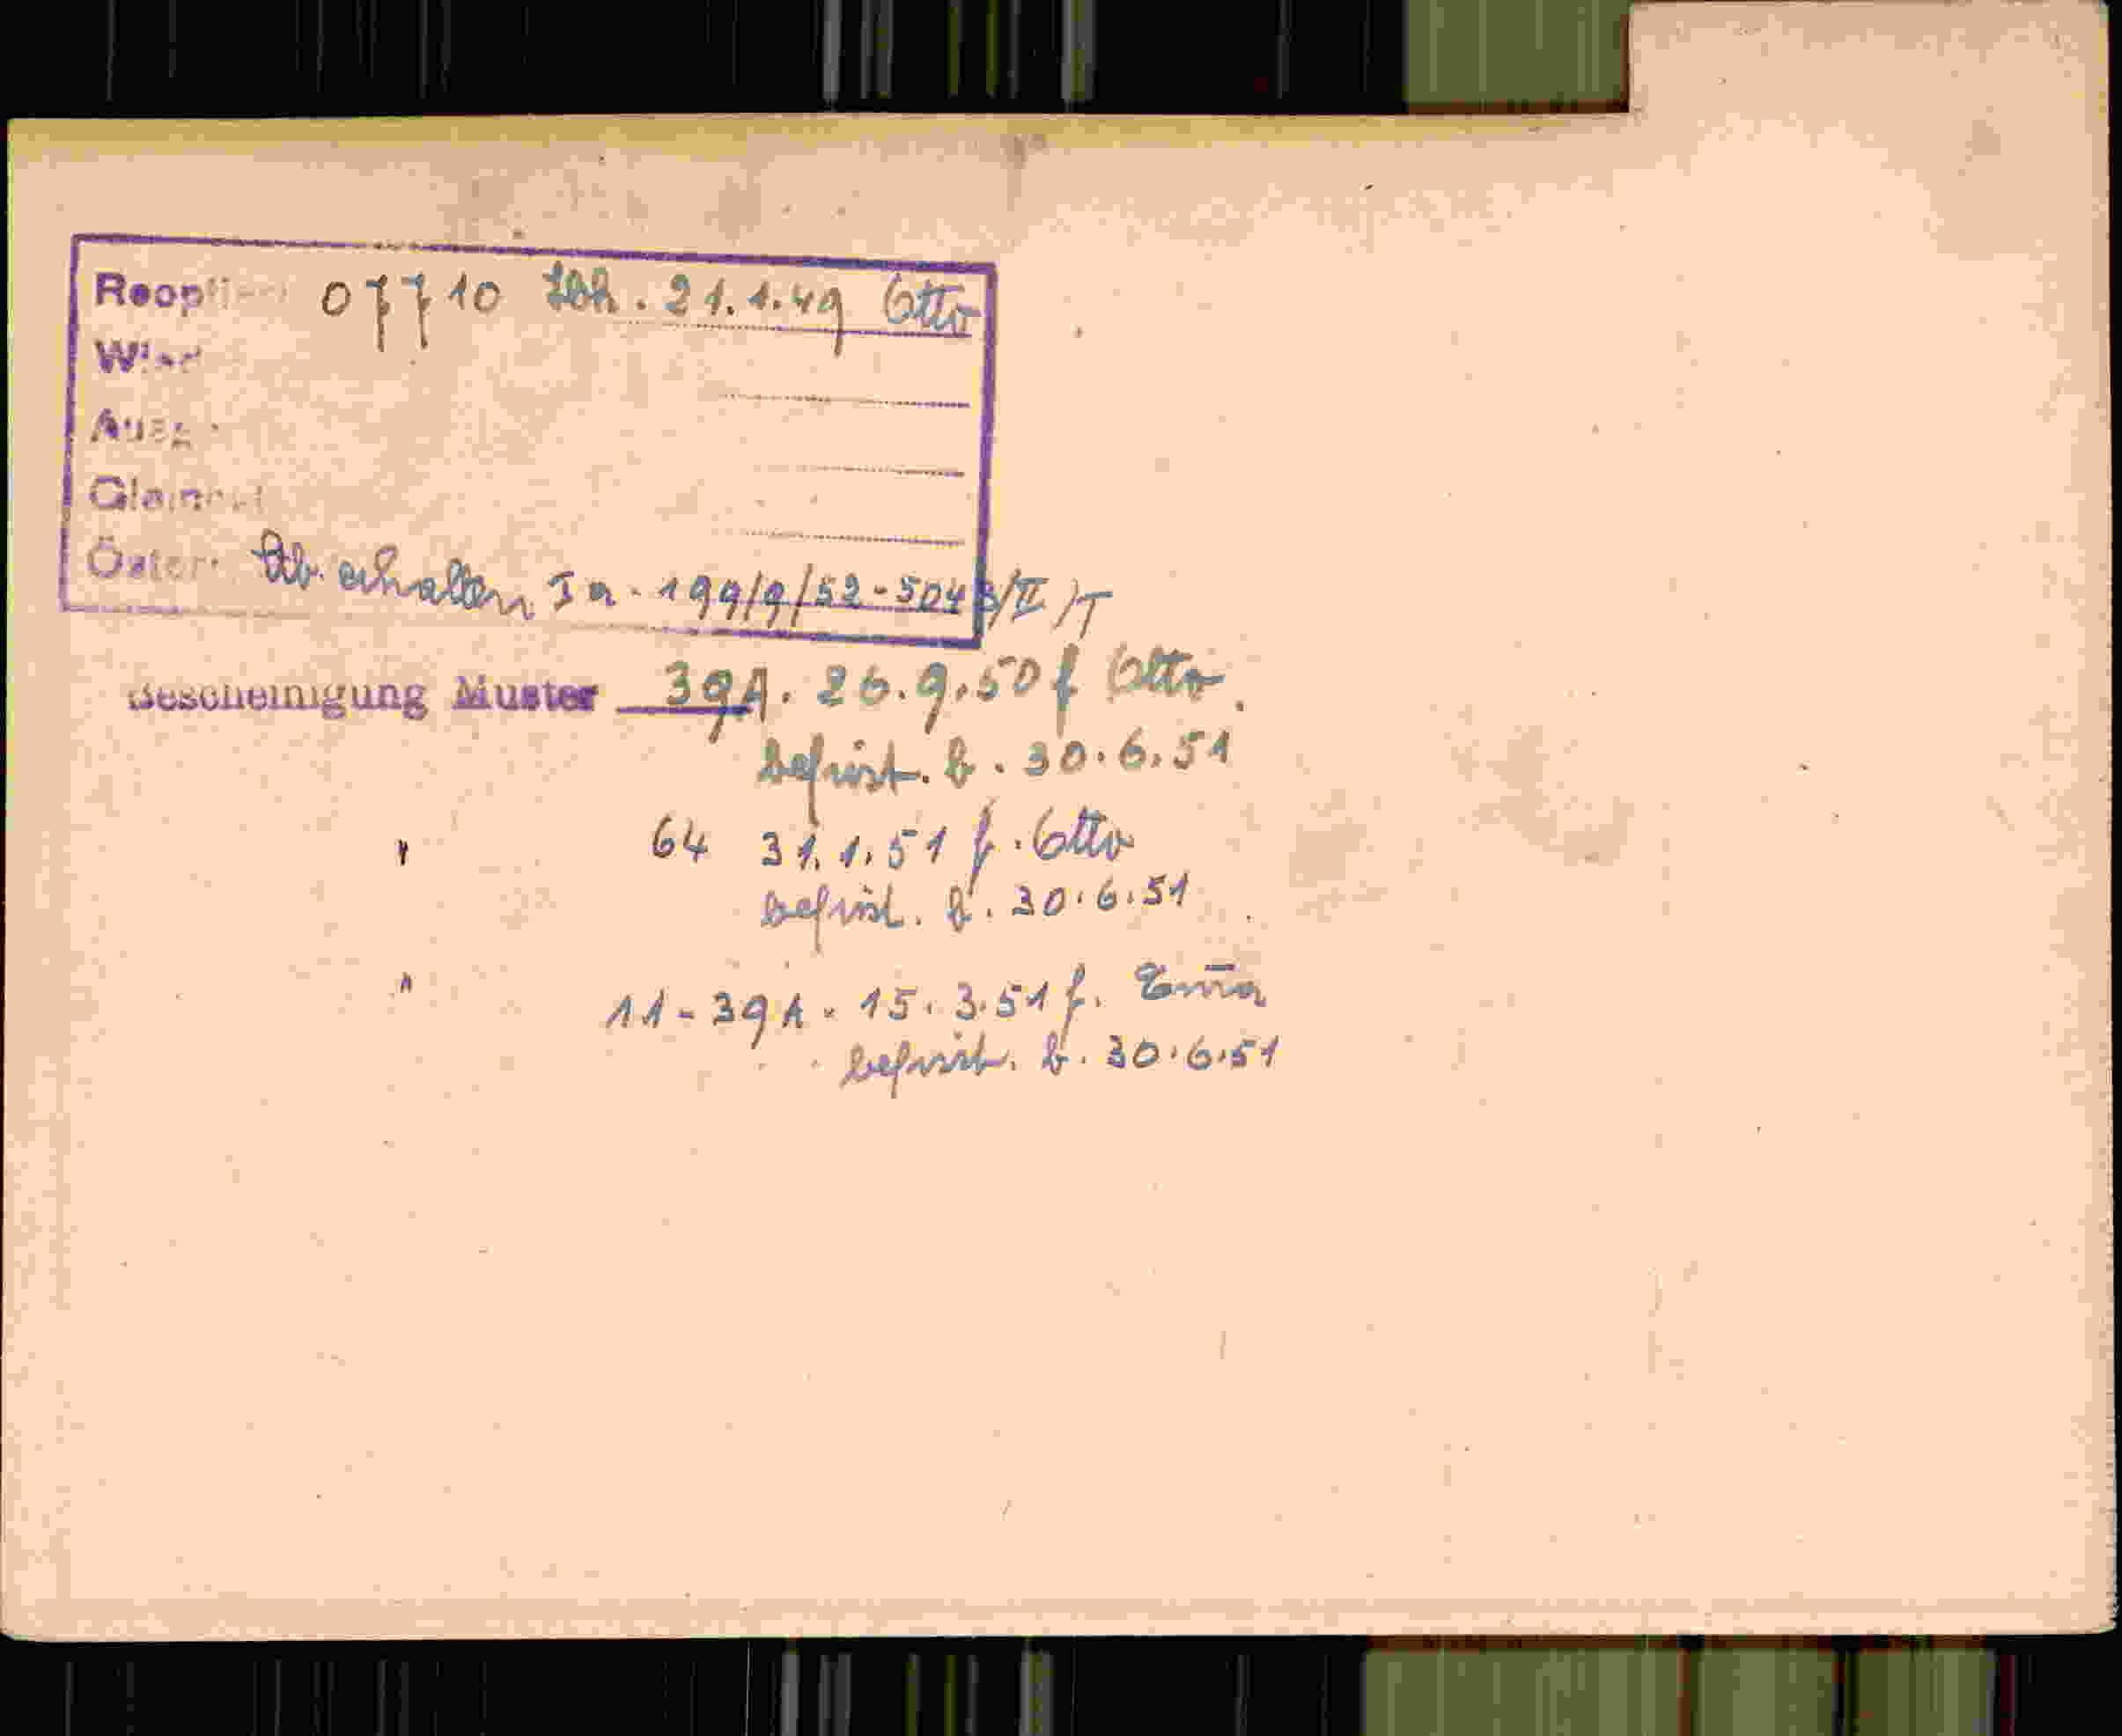 077 10 Ldh. 21.1.49 Otto
Stb. erhalten Ia - 199/9/52-5043/II/T
Bescheinigung Muster 39A. 26.9.50 f Otto.
befrist. b. 30.6.51
" 64 31.1.51 f. Otto
befrist. b. 30.6.51
" 11-39A. 15.3.51 f. Em̄a
befrist. b. 30.6.51